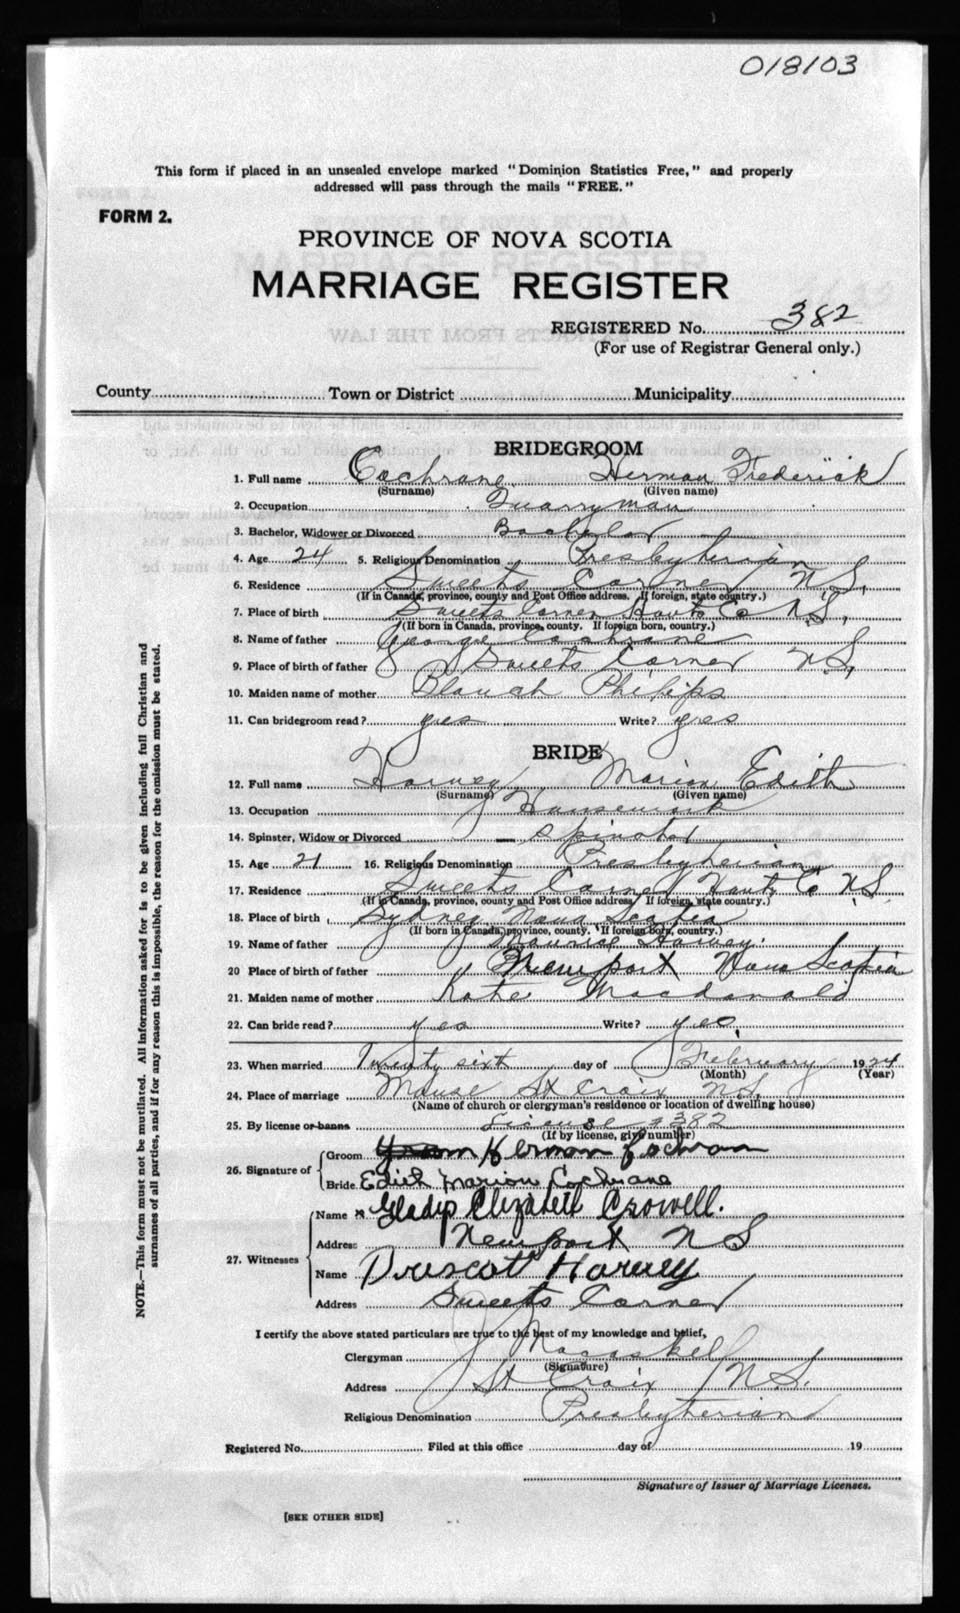 018103
This form if placed in an unsealed envelope marked "Dominion Statistics Free," and properly
addressed will pass through the mails "FREE."
FORM 2.
PROVINCE OF NOVA SCOTIA
MARRIAGE REGISTER
REGISTERED No. 382
(For use of Registrar General only.)
County Town or District Municipality
BRIDEGROOM
1. Full name Cochrane Herman Frederick
(Surname) (Given name)
2. Occupation Quarryman
3. Bachelor, Widower or Divorced Bachelor
4. Age 24 5. Religious Denomination Presbyterian
6. Residence Sweets Corner N.S.
(If in Canada, province, county and Post Office address. If foreign, state country.)
7. Place of birth Sweets Corner Hants Co N.S.
(If born in Canada, province, county. If foreign born, country.)
8. Name of father George Cochrane
9. Place of birth of father Sweets Corner N.S.
10. Maiden name of mother Blanch Philips
11. Can bridegroom read? yes Write? yes
BRIDE
12. Full name Harvey Marion Edith
(Surname) (Given name)
13. Occupation Housework
14. Spinster, Widow or Divorced Spinster
15. Age 21 16. Religious Denomination Presbyterian
17. Residence Sweets Corner Hants Co N.S.
(If in Canada, province, county and Post Office address. If foreign, state country.)
18. Place of birth Sydney Nova Scotia
(If born in Canada, province, county. If foreign born, country.)
19. Name of father Maurice Harvey.
20 Place of birth of father Newport Nova Scotia
21. Maiden name of mother Kate Macdonald
22. Can bride read? yes Write? yes
23. When married Twenty sixth day of February 1924
(Month) (Year)
24. Place of marriage Manse St Croix N.S.
(Name of church or clergyman's residence or location of dwelling house)
25. By license or banns License 382
(If by license, give number)
26. Signature of
Groom Herman Cochran
Bride Edith Marion Cochrane
27. Witnesses
Name Gladys Elizabeth Crowell.
Address Newport N S
Name Driscot Harvey
Address Sweets Corner
I certify the above stated particulars are true to the best of my knowledge and belief,
Clergyman J Macaskell
(Signature)
Address St Croix N.S.
Religious Denomination Presbyterian
Registered No. Filed at this office day of 19
Signature of Issuer of Marriage Licenses.
[SEE OTHER SIDE]
NOTE.—This form must not be mutilated. All information asked for is to be given including full Christian and
surnames of all parties, and if for any reason this is impossible, the reason for the omission must be stated.